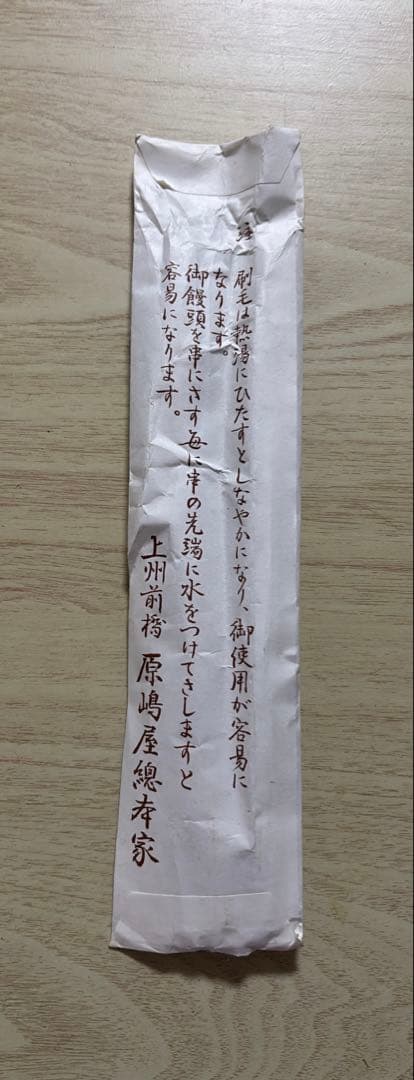 注 刷毛は熱湯にひたすとしなやかになり、御使用が容易に
なります。
御饅頭を串にさす毎に串の先端に水をつけてさしますと
容易になります。
上州前橋 原嶋屋總本家